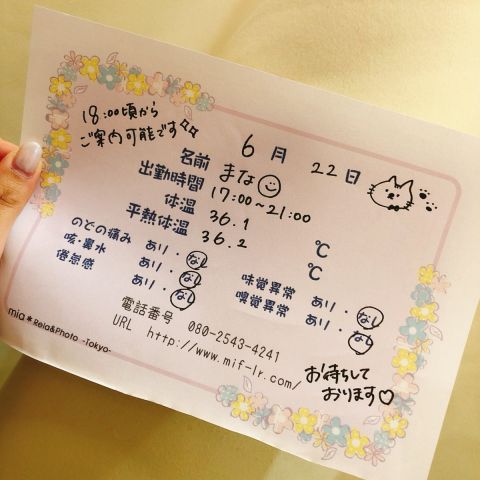 18:00頃から
ご案内可能です
6月 22日
名前 まな
出勤時間 17:00～21:00
体温 36.1 ℃
平熱体温 36.2 ℃
のどの痛み あり・なし
咳・鼻水 あり・なし
倦怠感 あり・なし
味覚異常 あり・なし
嗅覚異常 あり・なし
電話番号 080-2543-4241
URL http://www.mif-lr.com/
mia＊Rela&Photo -Tokyo-
お待ちして
おります♡